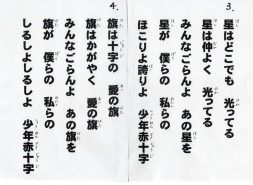 3.
星はどこでも　光ってる
星は仲よく　光ってる
みんなごらんよ　あの星を
星が　僕らの　私らの
ほこりよ誇りよ　少年赤十字
4.
旗は十字の　愛の旗
旗はかがやく　愛の旗
みんなごらんよ　あの旗を
旗が　僕らの　私らの
しるしよしるしよ　少年赤十字